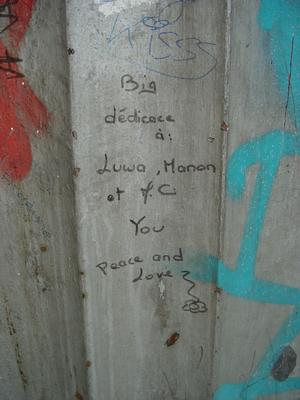 Big
dédicace
à:
Luwa, Manon
et
You
Peace and
Love